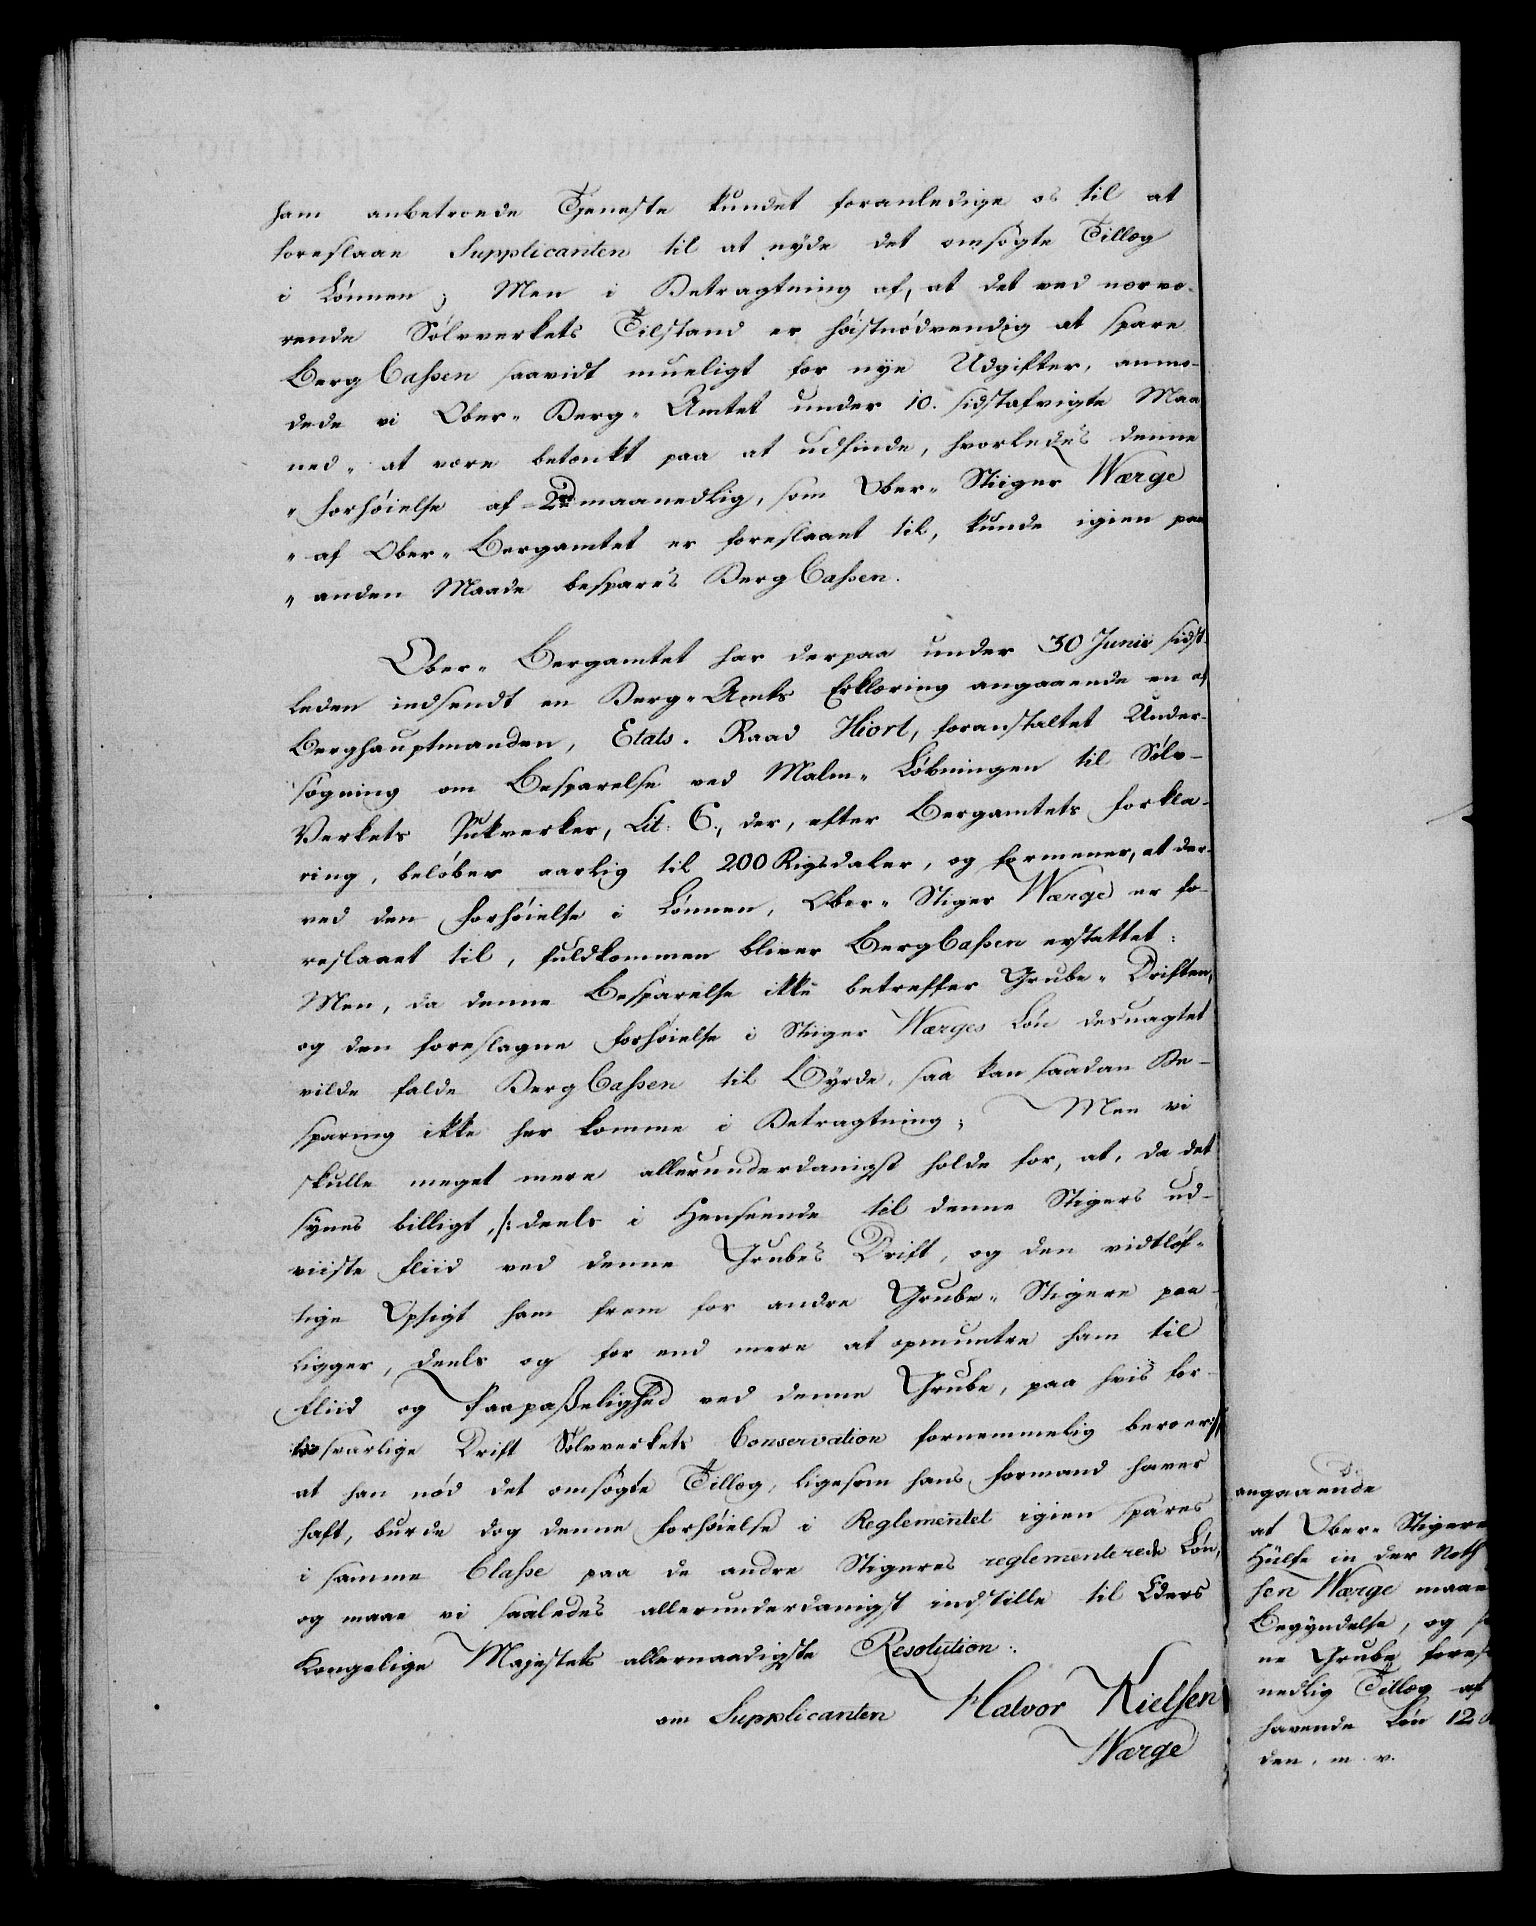 ham anbetroede Tjeneste kundet foranledige os til at
foreslaae Supplicanten til at nyde det omsøgte Tillæg
i Lønnen; Men i Betragtning af, at det ved nærvæ-
rende Sølvverkets Tilstand er høistnødvendig at spare
Berg Cassen saavidt mueligt for nye Udgifter, anmo-
dede vi Ober-Berg-Amtet under 10. sidstafvigte Maa
ned, at være betænkt paa at udfinde, hvorledes denne
„ Forhøielse af 2 rd maanedlig, som Ober-Stiiger Wærge
„ af Ober-Bergamtet er foreslaaet til, kunde igien paa
„ anden Maade bespares Berg Cassen.
Ober-Bergamtet har derpaa under 30 Junii sidst-
leden indsendt en Berg-Amts Erklæring angaaende en af
Berghauptmanden, Etats-Raad Hiort, foranstaltet Under-
søgning om Besparelse ved Malm-Løbningen til Sølv-
Verkets Pukverker, Lit: C., der, efter Bergamtets Forkla-
ring, beløber aarlig til 200 Rigsdaler, og formener, at der-
ved den Forhøielse i Lønnen, Ober-Stiger Wærge er fo-
reslaaet til, fuldkommen bliver Berg Cassen erstattet:
Men, da denne Besparelse ikke betreffer Grube-Driften,
og den foreslagne Forhøielse i Stiiger Wærges Løn desuagtet
vilde falde Berg Cassen til Byrde, saa kan saadan Be-
sparing ikke her komme i Betragtning; Men vi
skulle meget mere allerunderdanigst holde for, at, da det
synes billigt, /: deels i Henseende til denne Stigers ud-
viiste Fliid ved denne Grubes Drift, og den vidtløf-
tige Opsigt ham frem for andre Grube-Stigere paa-
ligger, deels og for end mere at opmuntre ham til
Fliid og Paapaßelighed ved denne Grube, paa hvis for-
svarlige Drift Sølvverkets Conservation fornemmelig beroer :/
at han nød det omsøgte Tillæg, ligesom hans Formand haver
haft, burde dog denne Forhøielse i Reglementet igien spares
i samme Classe paa de andre Stigeres reglementerede Løn,
og maae vi saaledes allerunderdanigst indstille til Eders
Kongelige Majestets allernaadigste Resolution:
om Supplicanten Halvor Kielsen
Wærge
angaaende
at Ober-Stigere
Hülfe in der Noth
sen Wærge maae
Begyndelse, og
ne Grube
nedlig Tillæg af
havende Løn 12
den, m. v.